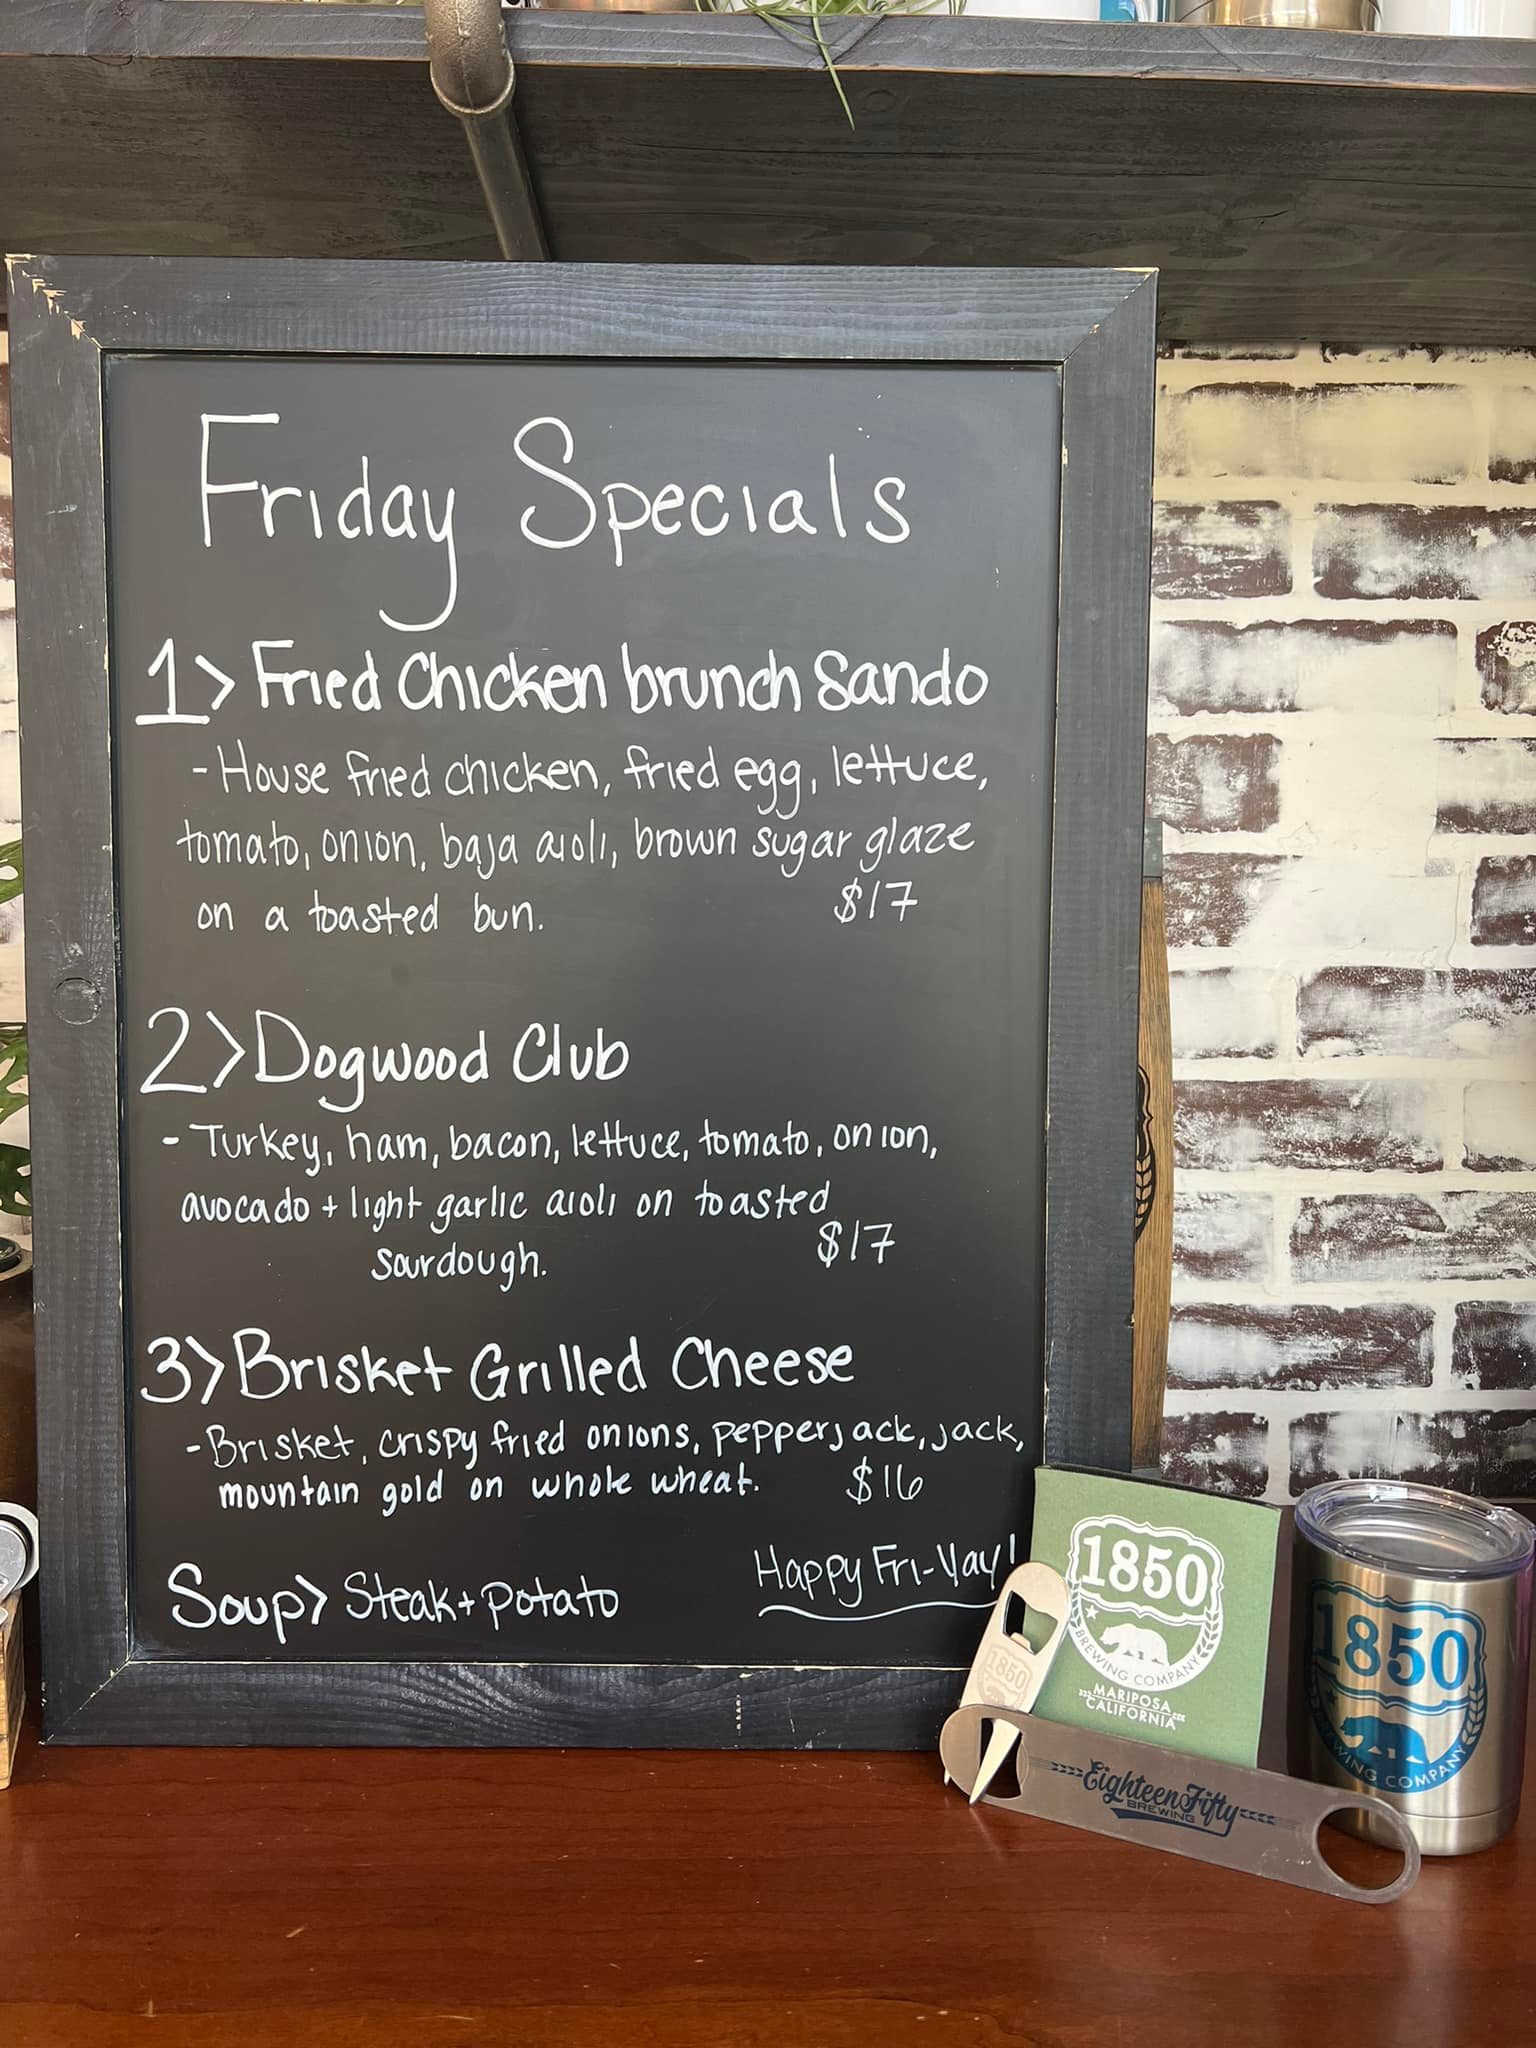 Friday Specials
1> Fried Chicken brunch Sando
- House fried chicken, fried egg, lettuce,
tomato, onion, baja aioli, brown sugar glaze
on a toasted bun. $17
2> Dogwood Club
- Turkey, ham, bacon, lettuce, tomato, onion,
avocado + light garlic aioli on toasted
sourdough. $17
3> Brisket Grilled Cheese
- Brisket, crispy fried onions, pepperjack, jack,
mountain gold on whole wheat. $16
Soup> Steak + potato
Happy Fri-Yay!
1850
BREWING COMPANY
MARIPOSA
CALIFORNIA
1850
Eighteen Fifty
BREWING
1850
BREWING COMPANY